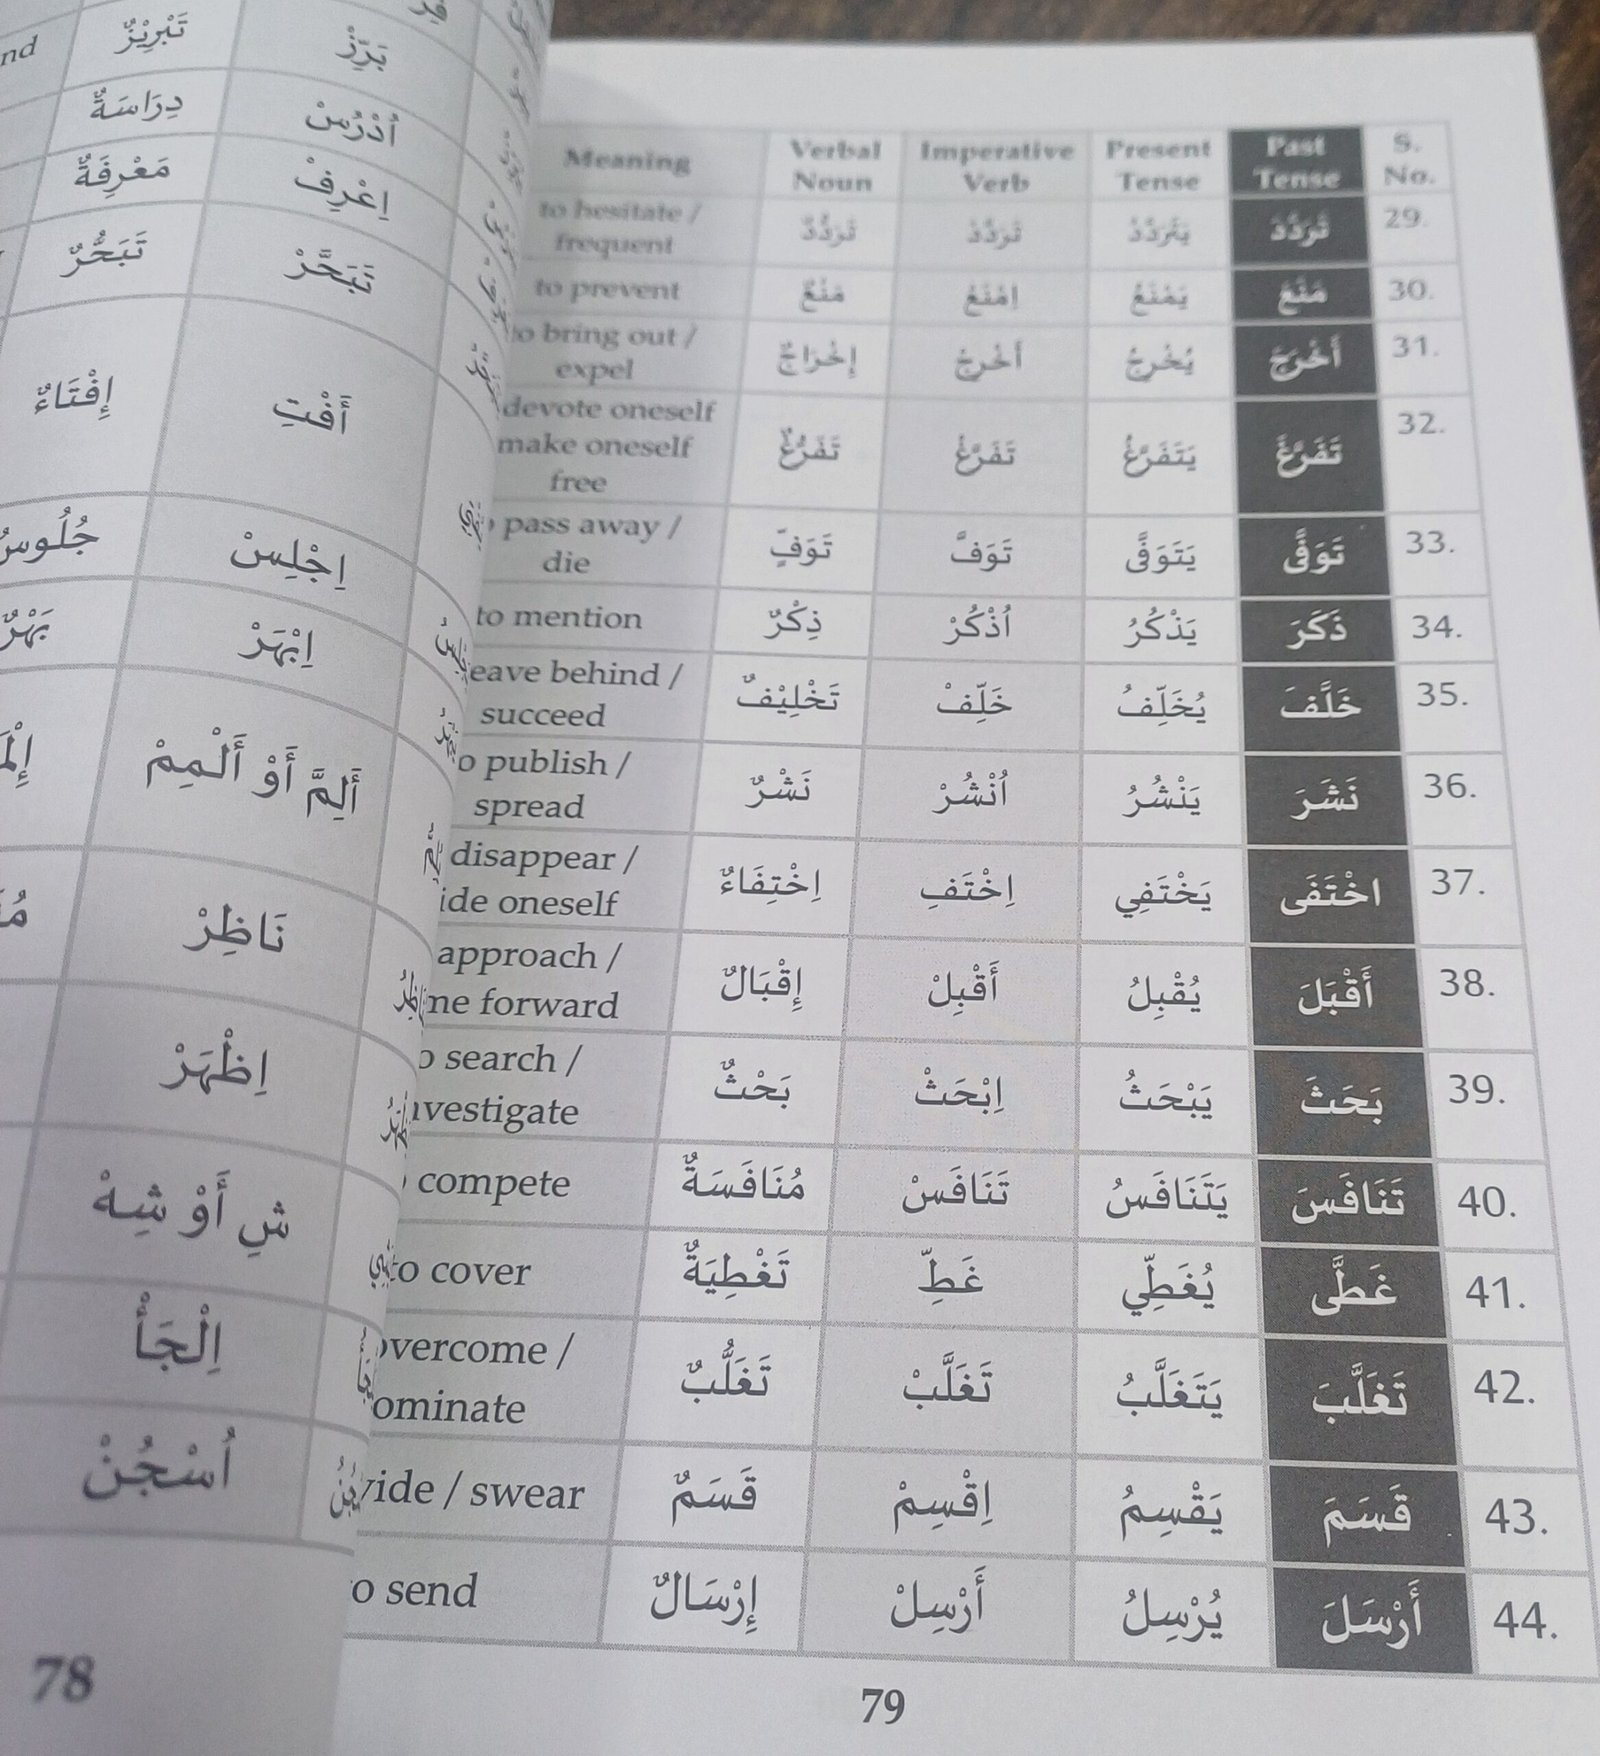 تَبْرِيْزٌ بَرِّزْ
دِرَاسَةٌ اُدْرُسْ
مَعْرِفَةٌ اِعْرِفْ
تَبَحُّرٌ تَبَحَّرْ
إِفْتَاءٌ أَفْتِ
جُلُوسٌ اِجْلِسْ
بَهْرٌ اِبْهَرْ
أَلِمَّ أَوْ أَلْمِمْ
نَاظِرْ
اِظْهَرْ
شِ أَوْ شِهْ
اِلْجَأْ
اُسْجُنْ
78
Meaning Verbal Noun Imperative Verb Present Tense Past Tense S. No.
to hesitate / frequent تَرَدُّدٌ تَرَدَّدْ يَتَرَدَّدُ تَرَدَّدَ 29.
to prevent مَنْعٌ اِمْنَعْ يَمْنَعُ مَنَعَ 30.
to bring out / expel إِخْرَاجٌ أَخْرِجْ يُخْرِجُ أَخْرَجَ 31.
devote oneself make oneself free تَفَرُّغٌ تَفَرَّغْ يَتَفَرَّغُ تَفَرَّغَ 32.
pass away / die تَوَفٍّ تَوَفَّ يَتَوَفَّى تَوَفَّى 33.
to mention ذِكْرٌ اُذْكُرْ يَذْكُرُ ذَكَرَ 34.
behind / succeed تَخْلِيْفٌ خَلِّفْ يُخَلِّفُ خَلَّفَ 35.
publish / spread نَشْرٌ اُنْشُرْ يَنْشُرُ نَشَرَ 36.
disappear / oneself اِخْتِفَاءٌ اِخْتَفِ يَخْتَفِي اخْتَفَى 37.
approach / forward إِقْبَالٌ أَقْبِلْ يُقْبِلُ أَقْبَلَ 38.
search / بَحْثٌ اِبْحَثْ يَبْحَثُ بَحَثَ 39.
compete مُنَافَسَةٌ تَنَافَسْ يَتَنَافَسُ تَنَافَسَ 40.
to cover تَغْطِيَةٌ غَطِّ يُغَطِّي غَطَّى 41.
overcome / تَغَلُّبٌ تَغَلَّبْ يَتَغَلَّبُ تَغَلَّبَ 42.
/ swear قَسَمٌ اِقْسِمْ يَقْسِمُ قَسَمَ 43.
to send إِرْسَالٌ أَرْسِلْ يُرْسِلُ أَرْسَلَ 44.
79